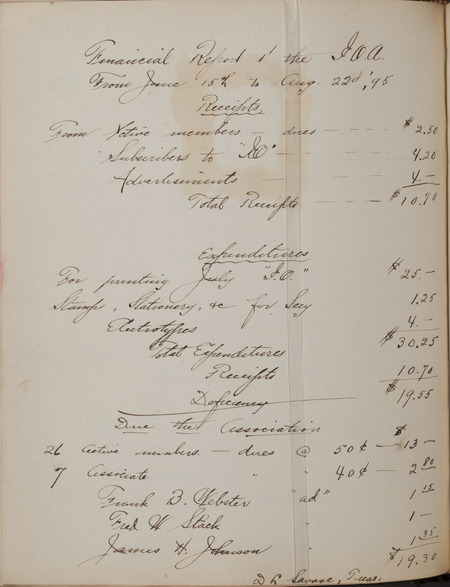 Financial Report of the I.O.A.
From June 15th to Aug. 22d, '95
Receipts.
From Active members dues — $2.50
" Subscribers to "I.O." — 4.20
Advertisements — 4.—
Total Receipts — $10.70
Expenditures
For printing July "I.O." $25.—
Stamps, Stationery, &c for Secy 1.25
Electrotypes 4.—
Total Expenditures $30.25
Receipts 10.70
Deficiency $19.55
Due the Association
26 active members. — dues @ 50¢ — $13—
7 Associate " " 40¢ — 2.80
Frank B. Webster "ad" 1.15
Fred W Stack " 1—
James H. Johnson " 1.35
$19.30
D L Savage, Treas.